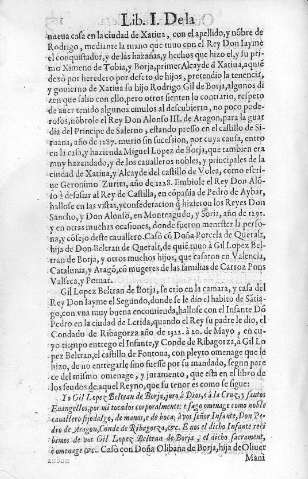 Lib. I. De la
nueva casa en la ciudad de Xatiua, con el apellido, y nõbre de
Rodrigo, mediante la mano que tuuo con el Rey Don Iayme
el conquistador, y de las hazañas, y hechos que hizo el, y su pri-
mo Ximeno de Tobia, y Borja, primer Alcayde d Xatiua, aquiē
dexò por heredero por defeto de hijos, pretendio la tenencia,
y gouierno de Xatiua su hijo Rodrigo Gil de Borja, algunos di
zen que salio con ello, pero otros sienten lo contrario, respeto
de auer tenido algunos emulos al descubierto, no poco pode-
rosos, nõbrole el Rey Don Alonso III. de Aragon, para la guar
dia del Principe de Salerno, estando preso en el castillo de Si-
urana, año de 1287. murio sin succession, por cuya causa, entro
en la casa, y hazienda Miguel Lopez de Borja, que tambien era
muy hazendado, y de los caualleros nobles, y principales de la
ciudad de Xatiua, y Alcayde del castillo de Vcles, como refie-
re Geronimo Zurita, año de 1288. Embiole el Rey Don Alõ-
so à desafiar al Rey de Castilla, en cõpañia de Pedro de Aybar,
hallose en las vistas, y confederacion q̃ hizieron los Reyes Don
Sancho, y Don Alonso, en Monteagudo, y Soria, año de 1291.
y en otras muchas ocasiones, donde fueron menester la perso-
na, y cõsejo deste cauallero. Casò cõ Doña Porcela de Queralt,
hija de Don Beltran de Queralt, de quiē tuuo à Gil Lopez Bel-
tran de Borja, y otros muchos hijos, que casaron en Valencia,
Catalunia, y Aragõ, cõ mugeres de las familias de Carroz Pons
Vallseca, y Pomar.
Gil Lopez Beltran de Borja, se crio en la camara, y casa del
Rey Don Iayme el Segundo, donde se le dio el habito de Sãtia-
go, con vna muy buena encomienda, hallose con el Infante Dõ
Pedro en la ciudad de Lerida, quando el Rey su padre le dio, el
Condado de Ribagorza año de 1322. à 20. de Mayo, en cu-
yo tiempo entrego el Infante, y Conde de Ribagorza, à Gil Lo
pez Beltran, el castillo de Fontoua, con pleyto omenage que le
hizo, de no entregalle sino fuesse por su mandado, segun pare-
ce del mismo omenage, y juramento, que esta en el libro de
los feudos de aquel Reyno, que su tenor es como se sigue:
Yo Gil Lopez Beltran de Borja, juro à Dios, è à la Cruz, y santos
Euangelios, por mi tocados corporalmente: è fago omenage como noble
cauallero fijodalgo, de manos, è de boca, à vos señor Infante, Don Pe-
dro de Aragon, Conde de Ribagorza, &c. E nos el dicho Infante reci
bimos de vos Gil Lopez Beltran de Borja, el dicho sacrament,
è omenage &c. Casò con Doña Olibana de Borja, hija de Oliuer
Mani